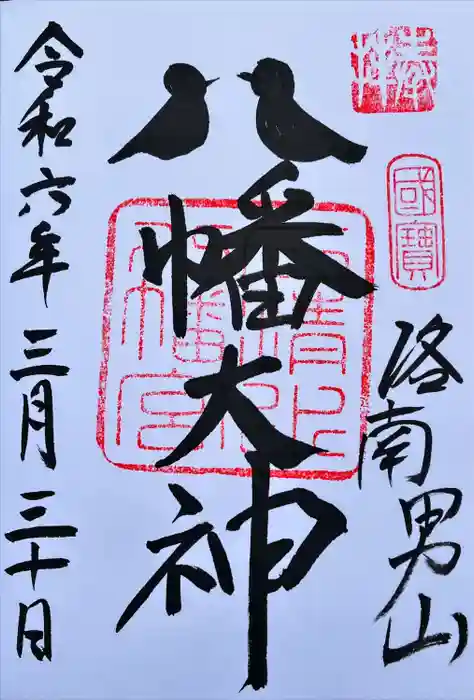 奉拝
國寶
洛南男山
八幡大神
石清水
八幡宮
令和六年三月三十日